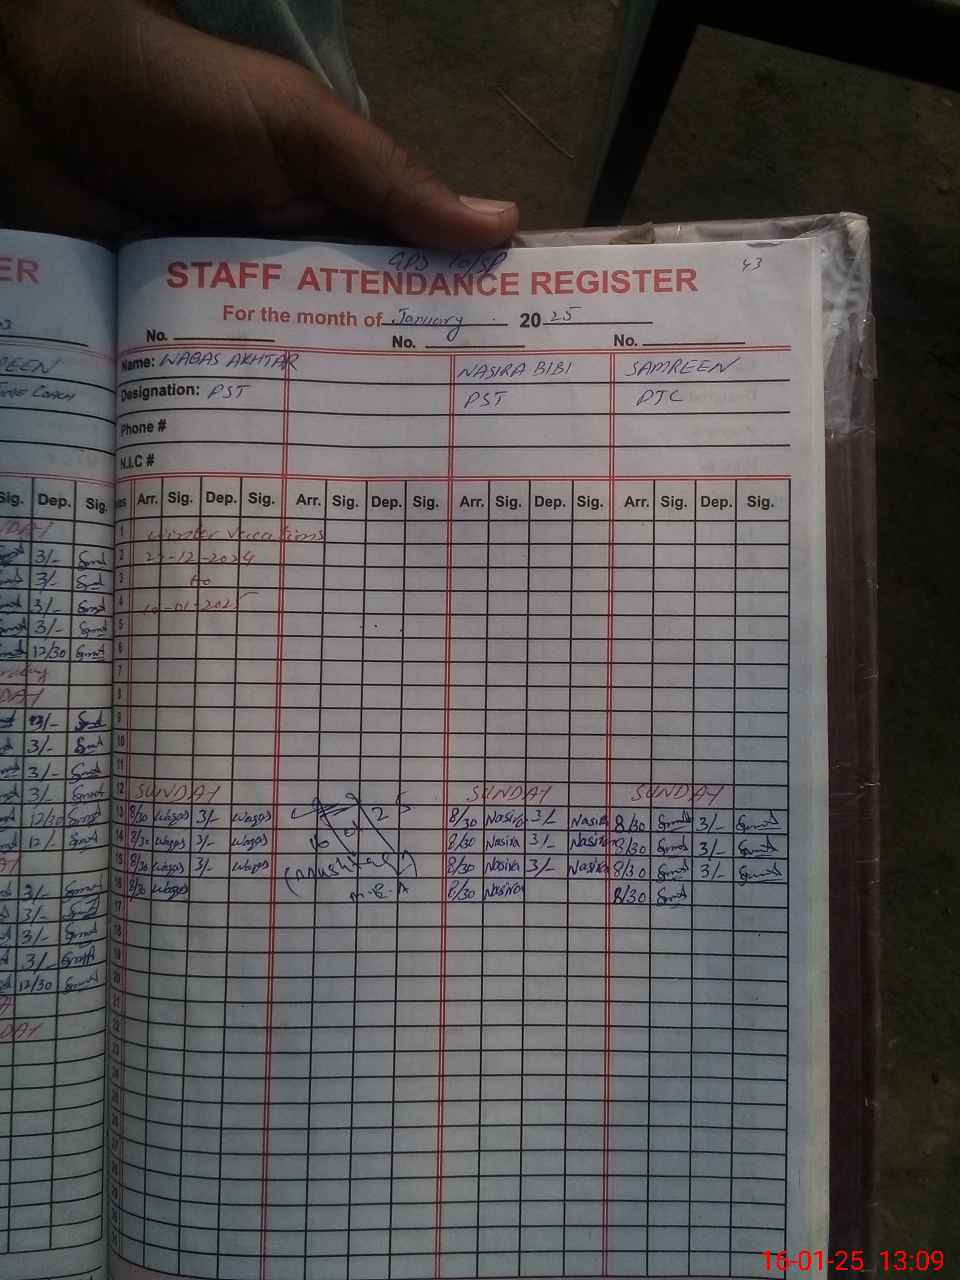 ER
REEN
COACH
Sig. Dep. Sig.
3/-
3/-
3/-
3/-
12/30
3/-
3/-
3/-
3/-
12/30
12/-
3/-
3/-
3/-
3/-
12/30
GPS 10/SP
43
STAFF ATTENDANCE REGISTER
For the month of January 2025
No. No. No.
Name: WAQAS AKHTAR NASIRA BIBI SAMREEN
Designation: PST PST PTC
Phone #
N.I.C #
Arr. Sig. Dep. Sig. Arr. Sig. Dep. Sig. Arr. Sig. Dep. Sig. Arr. Sig. Dep. Sig.
1 winter vacations
2 -12-2024
3 to
4 -01-2025
5
6
7
8
9
10
11
12 SUNDAY SUNDAY SUNDAY
13 8/30 Waqas 3/- Waqas 8/30 Nasira 3/- Nasira 8/30 3/-
14 8/30 Waqas 3/- Waqas 8/30 Nasira 3/- Nasira 8/30 3/-
15 8/30 Waqas 3/- Waqas 8/30 Nasira 3/- Nasira 8/30 3/-
16 8/30 Waqas 8/30 Nasira 8/30
16 01 25
17
18
19
20
21
22
23
24
25
26
27
28
29
30
31
16-01-25 13:09